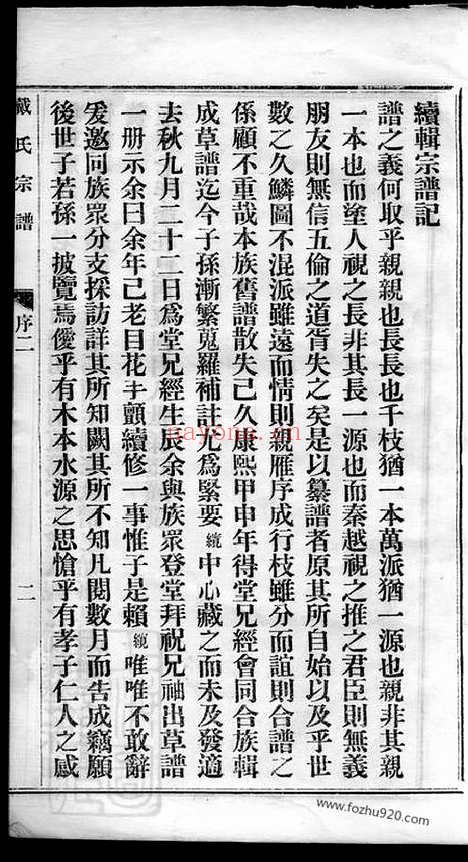 續輯宗譜記
譜之義何取乎親親也長長也千枝猶一本萬派猶一源也親非其親
一本也而塗人視之長非其長一源也而秦越視之推之君臣則無義
朋友則無信五倫之道胥失之矣是以纂譜者原其所自始以及乎世
數之久鱗圖不混派雖遠而情則親雁序成行枝雖分而誼則合譜之
係顧不重哉本族舊譜散失已久康熙甲申年得堂兄經會同合族輯
成草譜迄今子孫漸繁蒐羅補註尤為緊要 中心藏之而未及發適
去秋九月二十二日為堂兄經生辰余與族眾登堂拜祝兄袖出草譜
一册示余曰余年已老目花手顫續修一事惟子是賴 唯唯不敢辭
爰邀同族眾分支採訪詳其所知闕其所不知凡閱數月而告成竊願
後世子若孫一披覽焉僾乎有木本水源之思愴乎有孝子仁人之感
戴氏宗譜
序二
二
nayona.cn
www.fozhu920.com